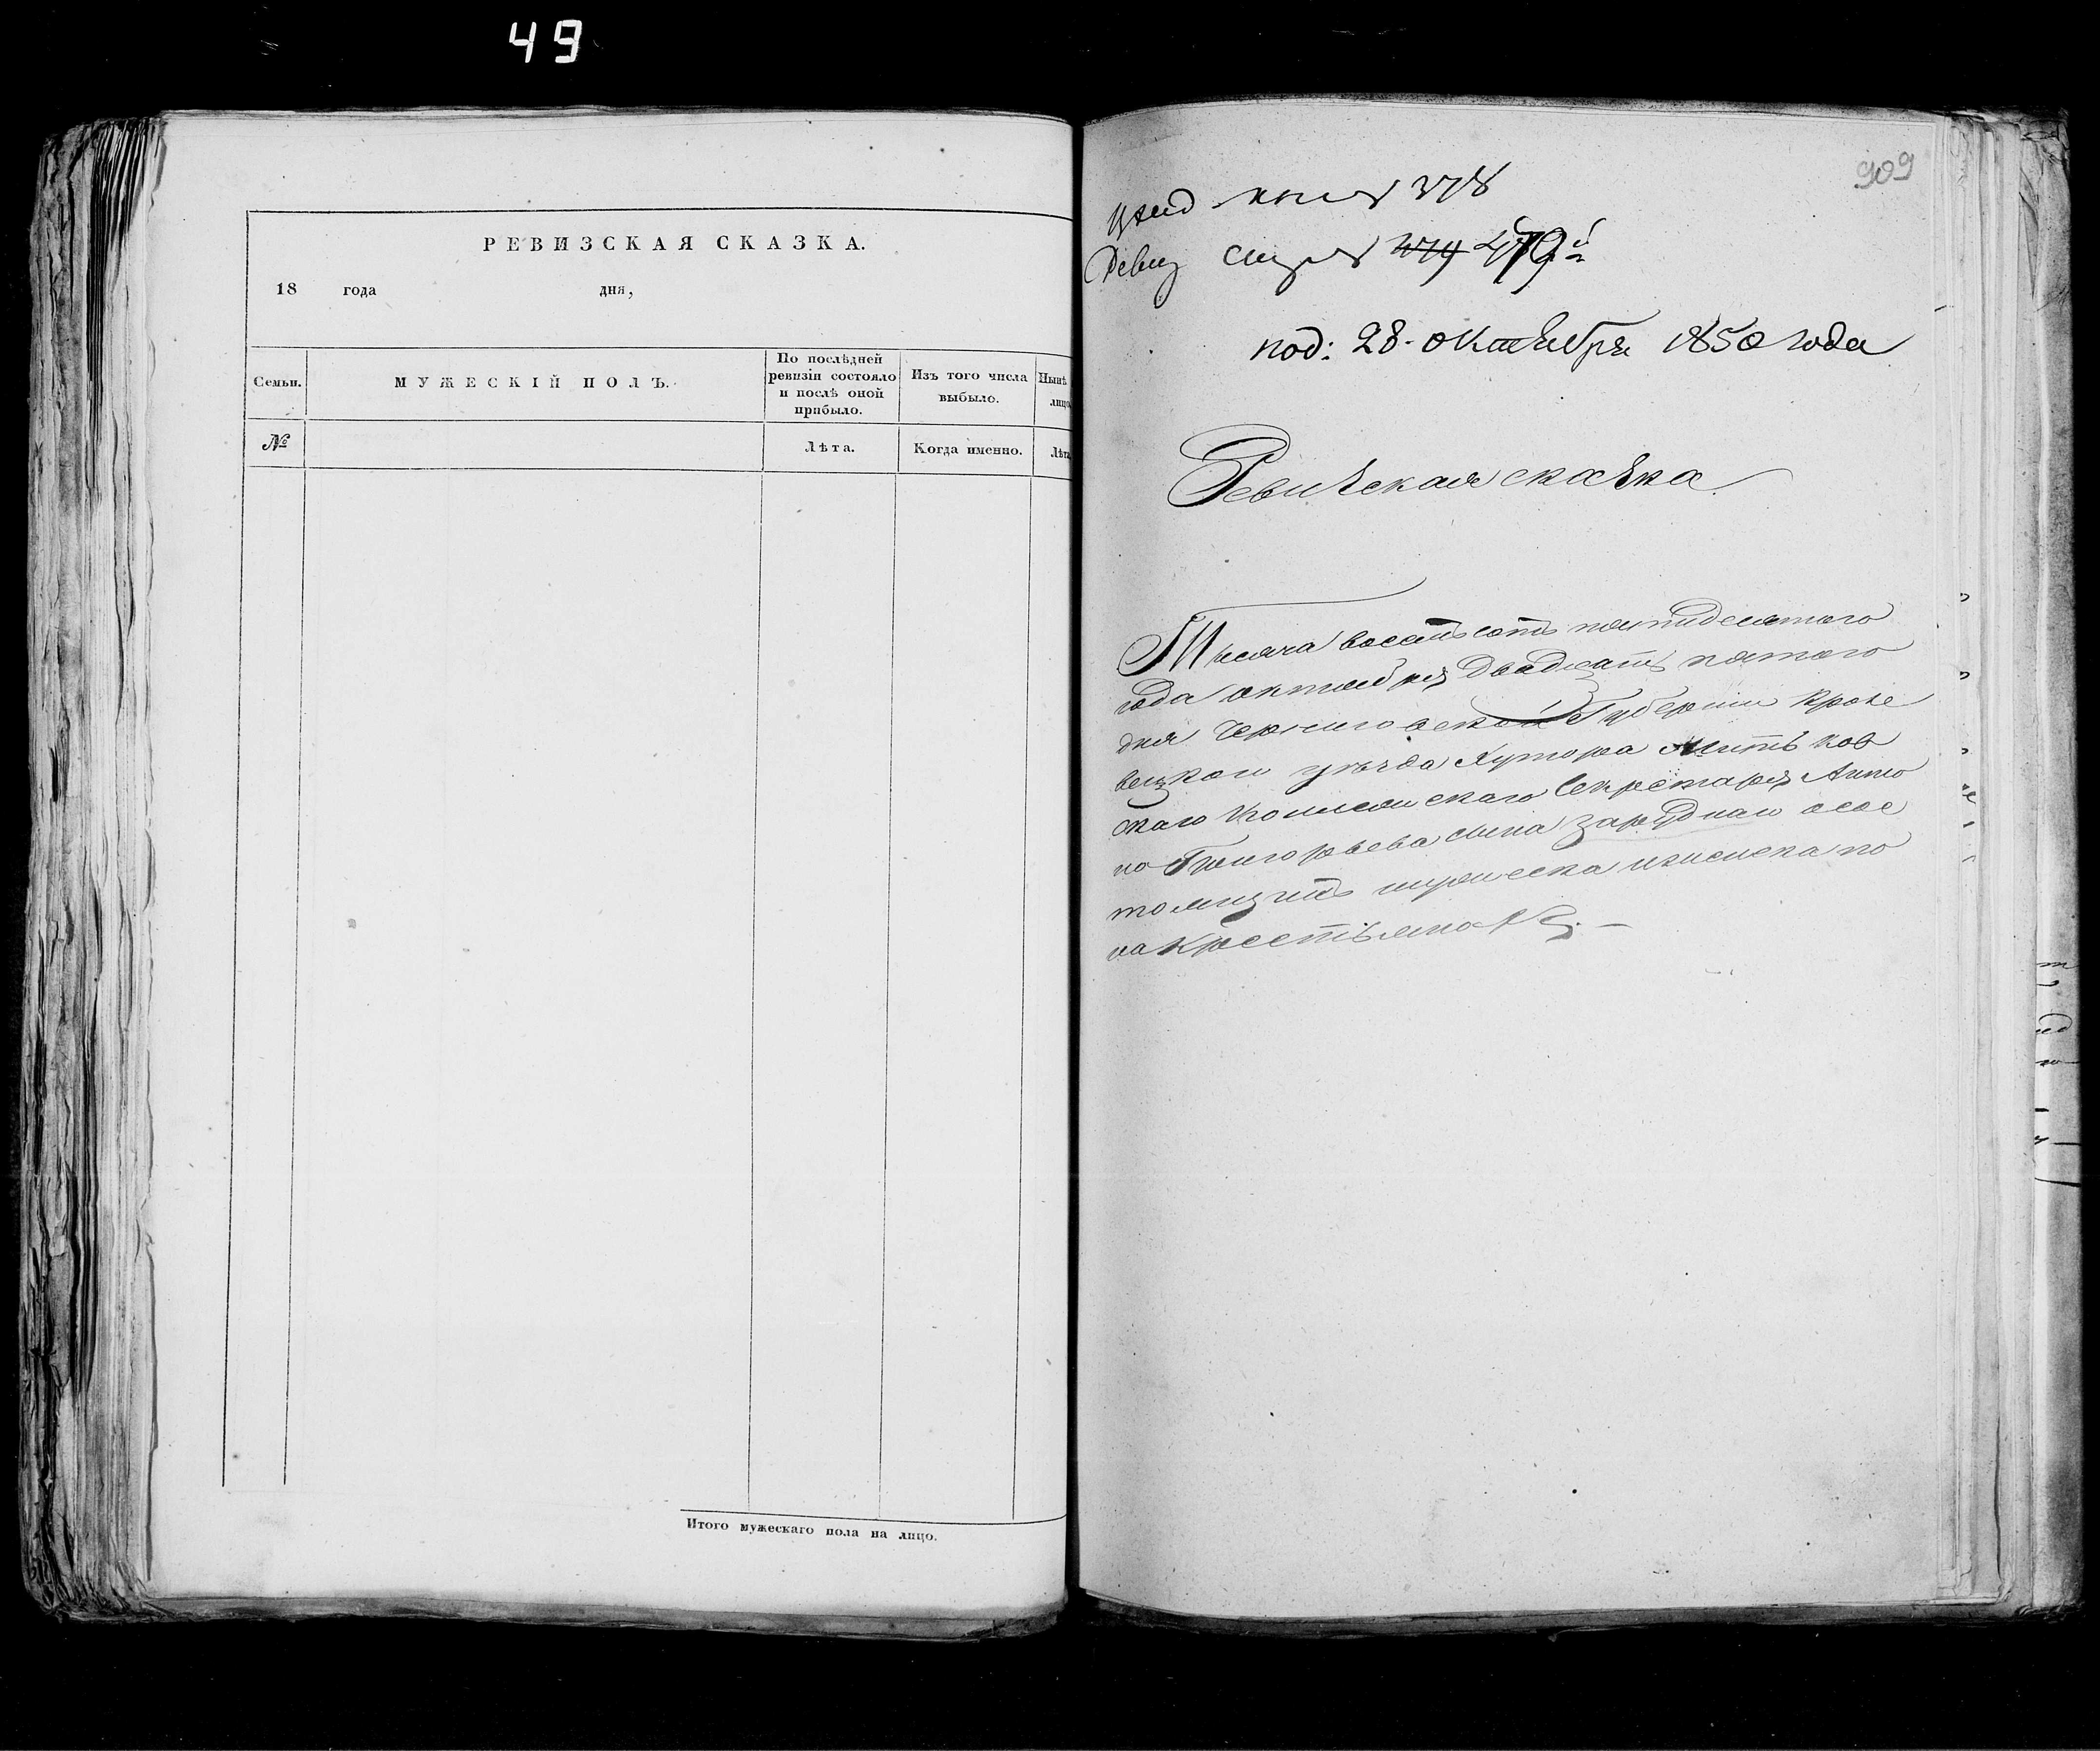 49
РЕВИЗСКАЯ СКАЗКА.
18 года дня,
Семьи.
МУЖЕСКІЙ ПОЛЪ.
По послѣдней
ревизіи состояло
и послѣ оной
прибыло.
Изъ того числа
выбыло.
Нынѣ
лицо
№
Лѣта.
Когда именно.
Лѣта
Итого мужескаго пола на лицо.
909
378
Ревиз 479й
под: 28 октября 1850 года
Ревизская сказка
Тысяча восемьсотъ пятидесятого
года октября двадцать пятого
дня Черниговской Губернии Кроле
вецкого уезда Хутора Митьков
скаго Коллежскаго Секретаря Анто
на Григорьева сына Заруднаго о
на крестьянахъ